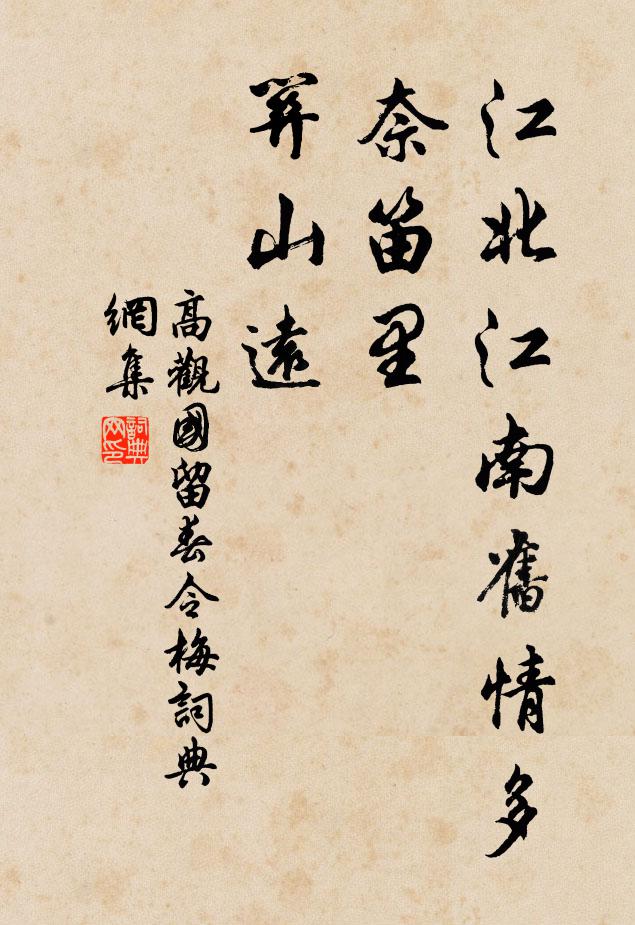 江北江南舊情多
奈笛里
關山遠
高觀國留春令梅詞典
網集
詞典
网印